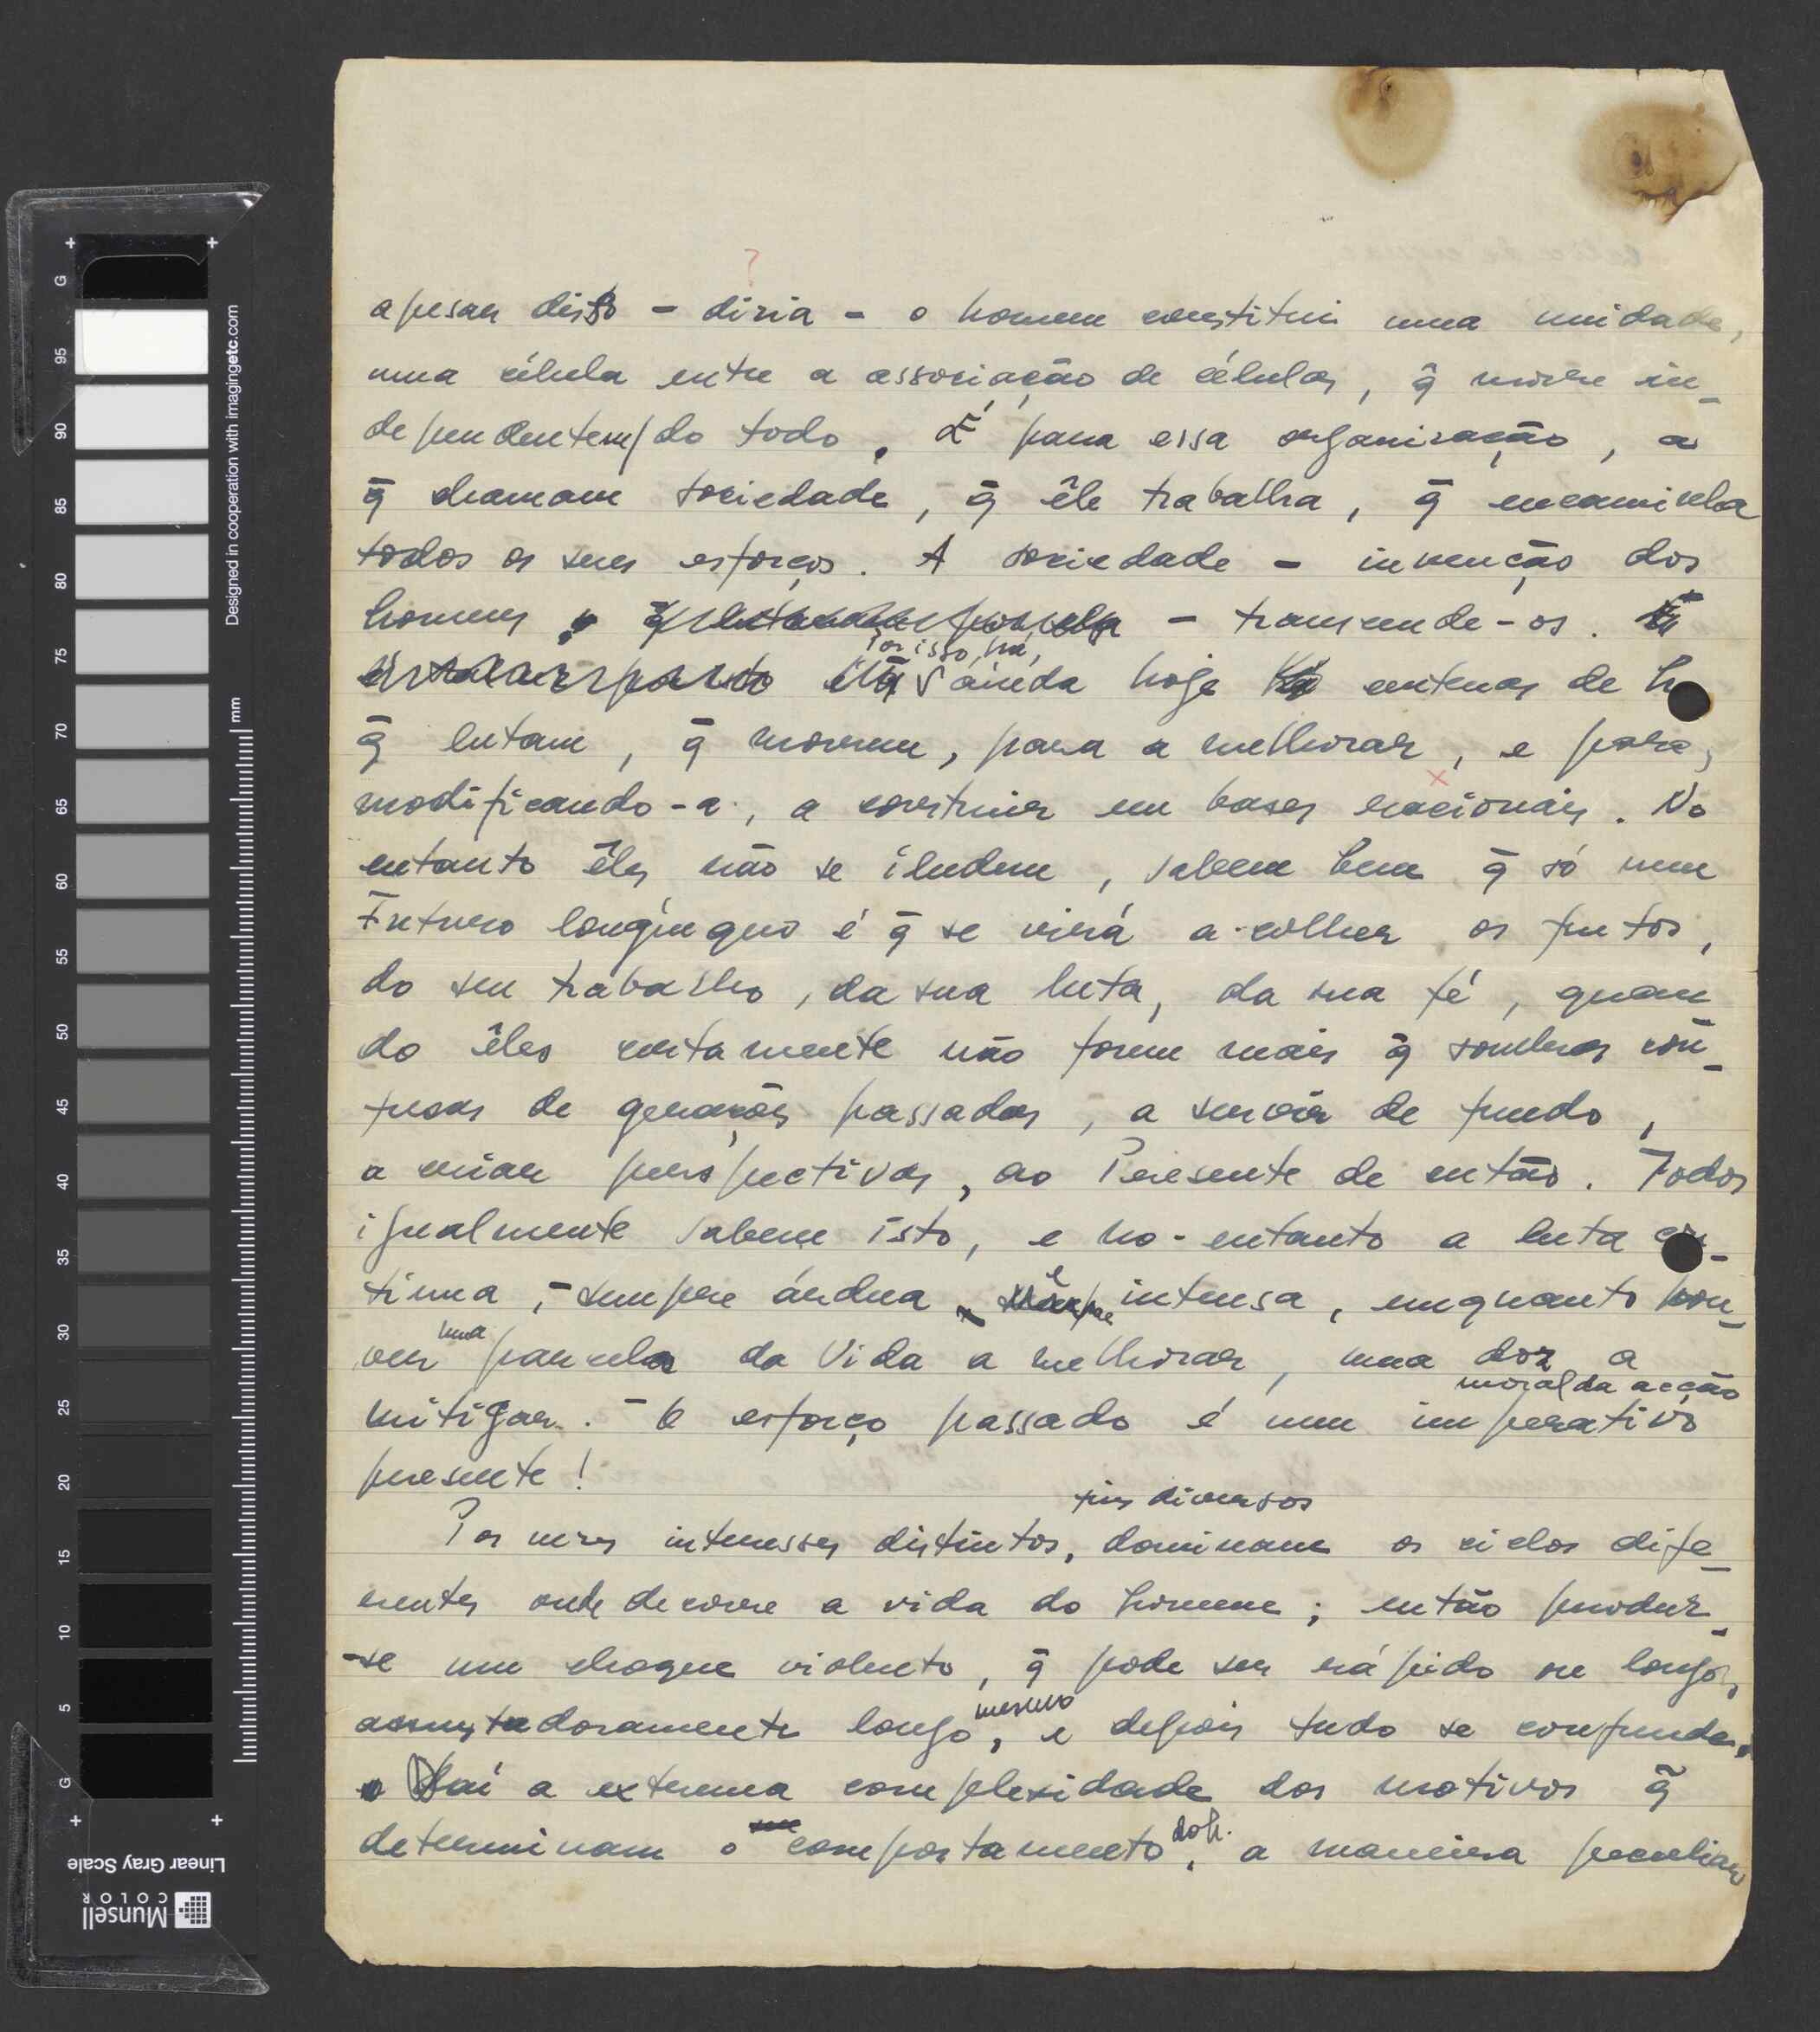 apesar disso - diria - o homem constitui uma unidade,
uma célula entre a associação de células, q̃ morre in_
dependentem/ do todo. É para essa organização, a
q̃ chamam sociedade, q̃ êle trabalha, q̃ encaminha
todos os seus esforços. A sociedade - invenção dos
homens - transcende-os.
Por isso, há,
ainda hoje centenas de h
q̃ lutam, q̃ morrem, para a melhorar, e para,
modificando-a, a construir em bases racionais. No
entanto êles não se iludem, sabem bem q̃ só num
Futuro longínquo é q̃ se virá a colher os frutos,
do seu trabalho, da sua luta, da sua fé, quan
do êles certamente não forem mais q̃ sombras con_
fusas de gerações passadas, a servir de fundo,
a criar perspectivas, ao Presente de então. Todos
igualmente sabem isto, e no-entanto a luta con_
tinua, - sempre árdua e intensa, emquanto hou_
ver uma parcela da Vida a melhorar, uma dor a
moral da acção
mitigar. - O esforço passado é um imperativo
presente!
fins diversos
Por vezes interesses distintos, dominam os ciclos dife_
rentes onde decorre a vida do homem; então produz_
-se um choque violento, q̃ pode ser rápido ou longo,
mesmo
assustadoramente longo, e depois tudo se confunde.
Daí a extrema complexidade dos motivos q̃
determinam o comportamento do h., a maneira peculiar
Designed in cooperation with imagingetc.com
mm
G
95
90
85
80
75
70
65
60
55
50
45
40
35
30
25
20
15
10
5
G
Linear Gray Scale
Munsell
COLOR